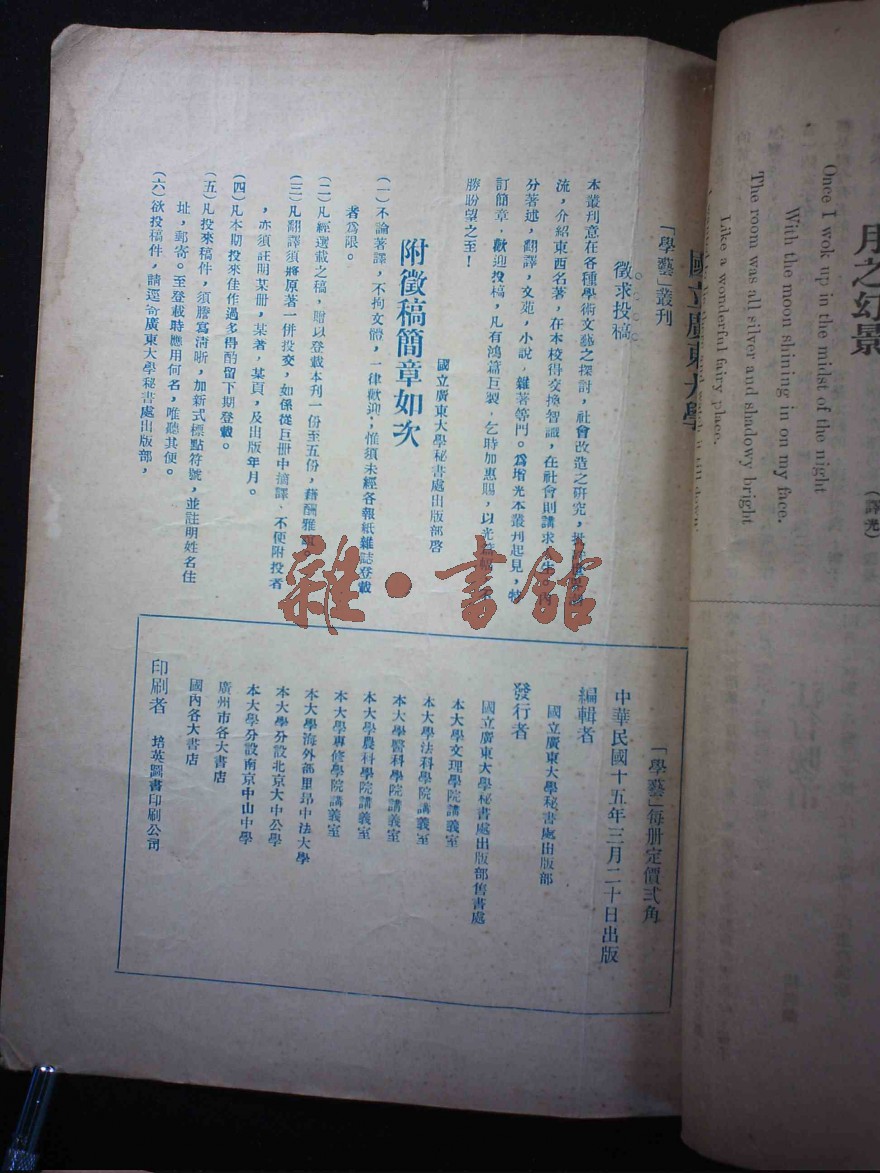 月之幻景
(譯光)
Once I wok up in the midst of the night
With the moon shining in on my face.
The room was all silver and shadowy bright
Like a wonderful fairy place.
國立廣東大學
「學藝」叢刊
徵求投稿
本叢刊意在各種學術文藝之探討，社會改造之研究，
流，介紹東西名著，在本校得交換智識，在社會則講求
分著述，翻譯，文苑，小說，雜著等門。為增光本叢刊起見，特
訂簡章，歡迎投稿，凡有鴻篇巨製，乞時加惠賜，以光篇幅，
勝盼望之至！
國立廣東大學秘書處出版部啓
附徵稿簡章如次
(一)不論著譯，不拘文體，一律歡迎；惟須未經各報紙雜誌登載
者為限。
(二)凡經選載之稿，贈以登載本刊一份至五份，藉酬雅
(三)凡翻譯須將原著一併投交，如係從巨冊中摘譯，不便附投者
，亦須註明某冊，某著，某頁，及出版年月。
(四)凡本期投來佳作過多得酌留下期登載。
(五)凡投來稿件，須謄寫清晰，加新式標點符號，並註明姓名住
址，郵寄。至登載時應用何名，唯聽其便。
(六)欲投稿件，請逕寄廣東大學秘書處出版部，
「學藝」每冊定價弍角
中華民國十五年三月二十日出版
編輯者
國立廣東大學秘書處出版部
發行者
國立廣東大學秘書處出版部售書處
本大學文理學院講義室
本大學法科學院講義室
本大學醫科學院講義室
本大學農科學院講義室
本大學專修學院講義室
本大學海外部里昂中法大學
本大學分設北京大中公學
本大學分設南京中山中學
廣州市各大書店
國內各大書店
印刷者
培英圖書印刷公司
雜·書館